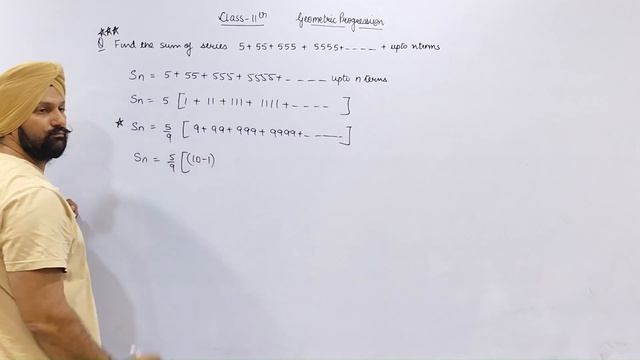 Class-11th Geometric Progression
***
Q Find the sum of series 5+55+555+5555+---- + upto n terms
Sn = 5+55+555+5555+---- upto n terms
Sn = 5 [1+11+111+1111+---- ]
* Sn = 5/9 [9+99+999+9999+---- ]
Sn = 5/9 [(10-1)